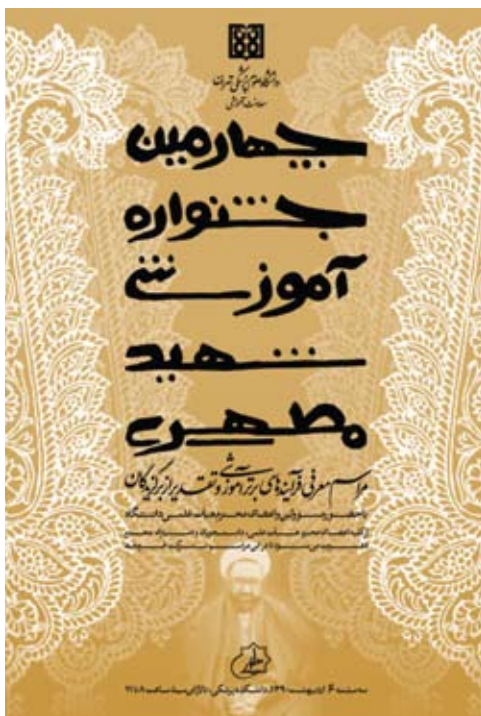 دانشگاه علوم پزشکی تهران
معاونت آموزشی
چهارمین
جشنواره
آموزشی
شهید
مطهری
مراسم معرفی فرآیندهای برتر آموزشی و تقدیر از برگزیدگان
با حضور
سه شنبه ۶ اردیبهشت ۱۳۹۰، دانشکده پزشکی، تالار ابن سینا، ساعت ۸ تا ۱۲